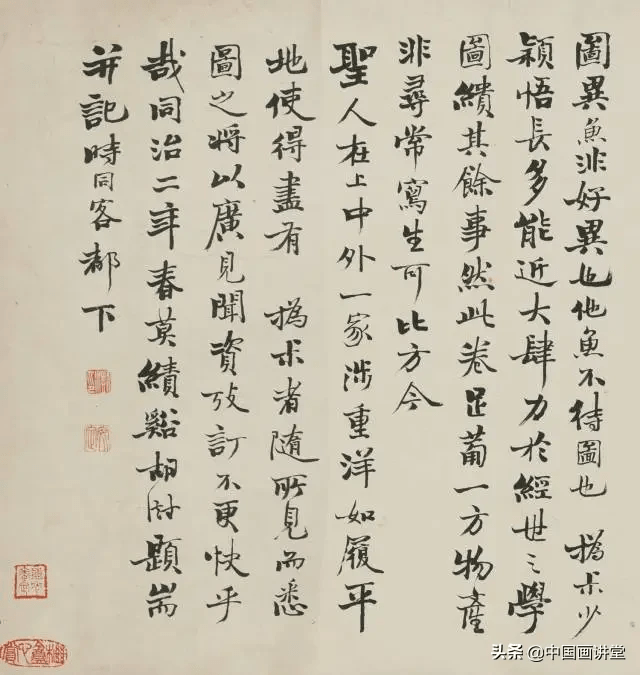 圖異魚非好異也他魚不待圖也 撝尗少
穎悟長多能近大肆力於經世之學
圖繢其餘事然此卷足葡一方物產
非尋常寫生可比方今
聖人在上中外一家涉重洋如履平
地使得盡有 撝尗者隨所見而悉
圖之將以廣見聞資攷訂不更快乎
哉同治二年春莫績谿胡澍題耑
并記時同客都下
头条 @中国画讲堂